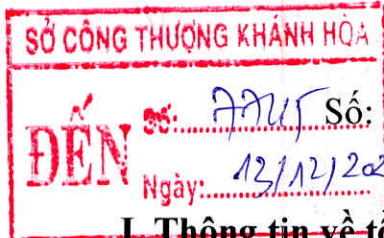 SỞ CÔNG THƯƠNG KHÁNH HÒA
ĐẾN
Số: Số:
Ngày: 13/12/202
I. Thông tin về tổ